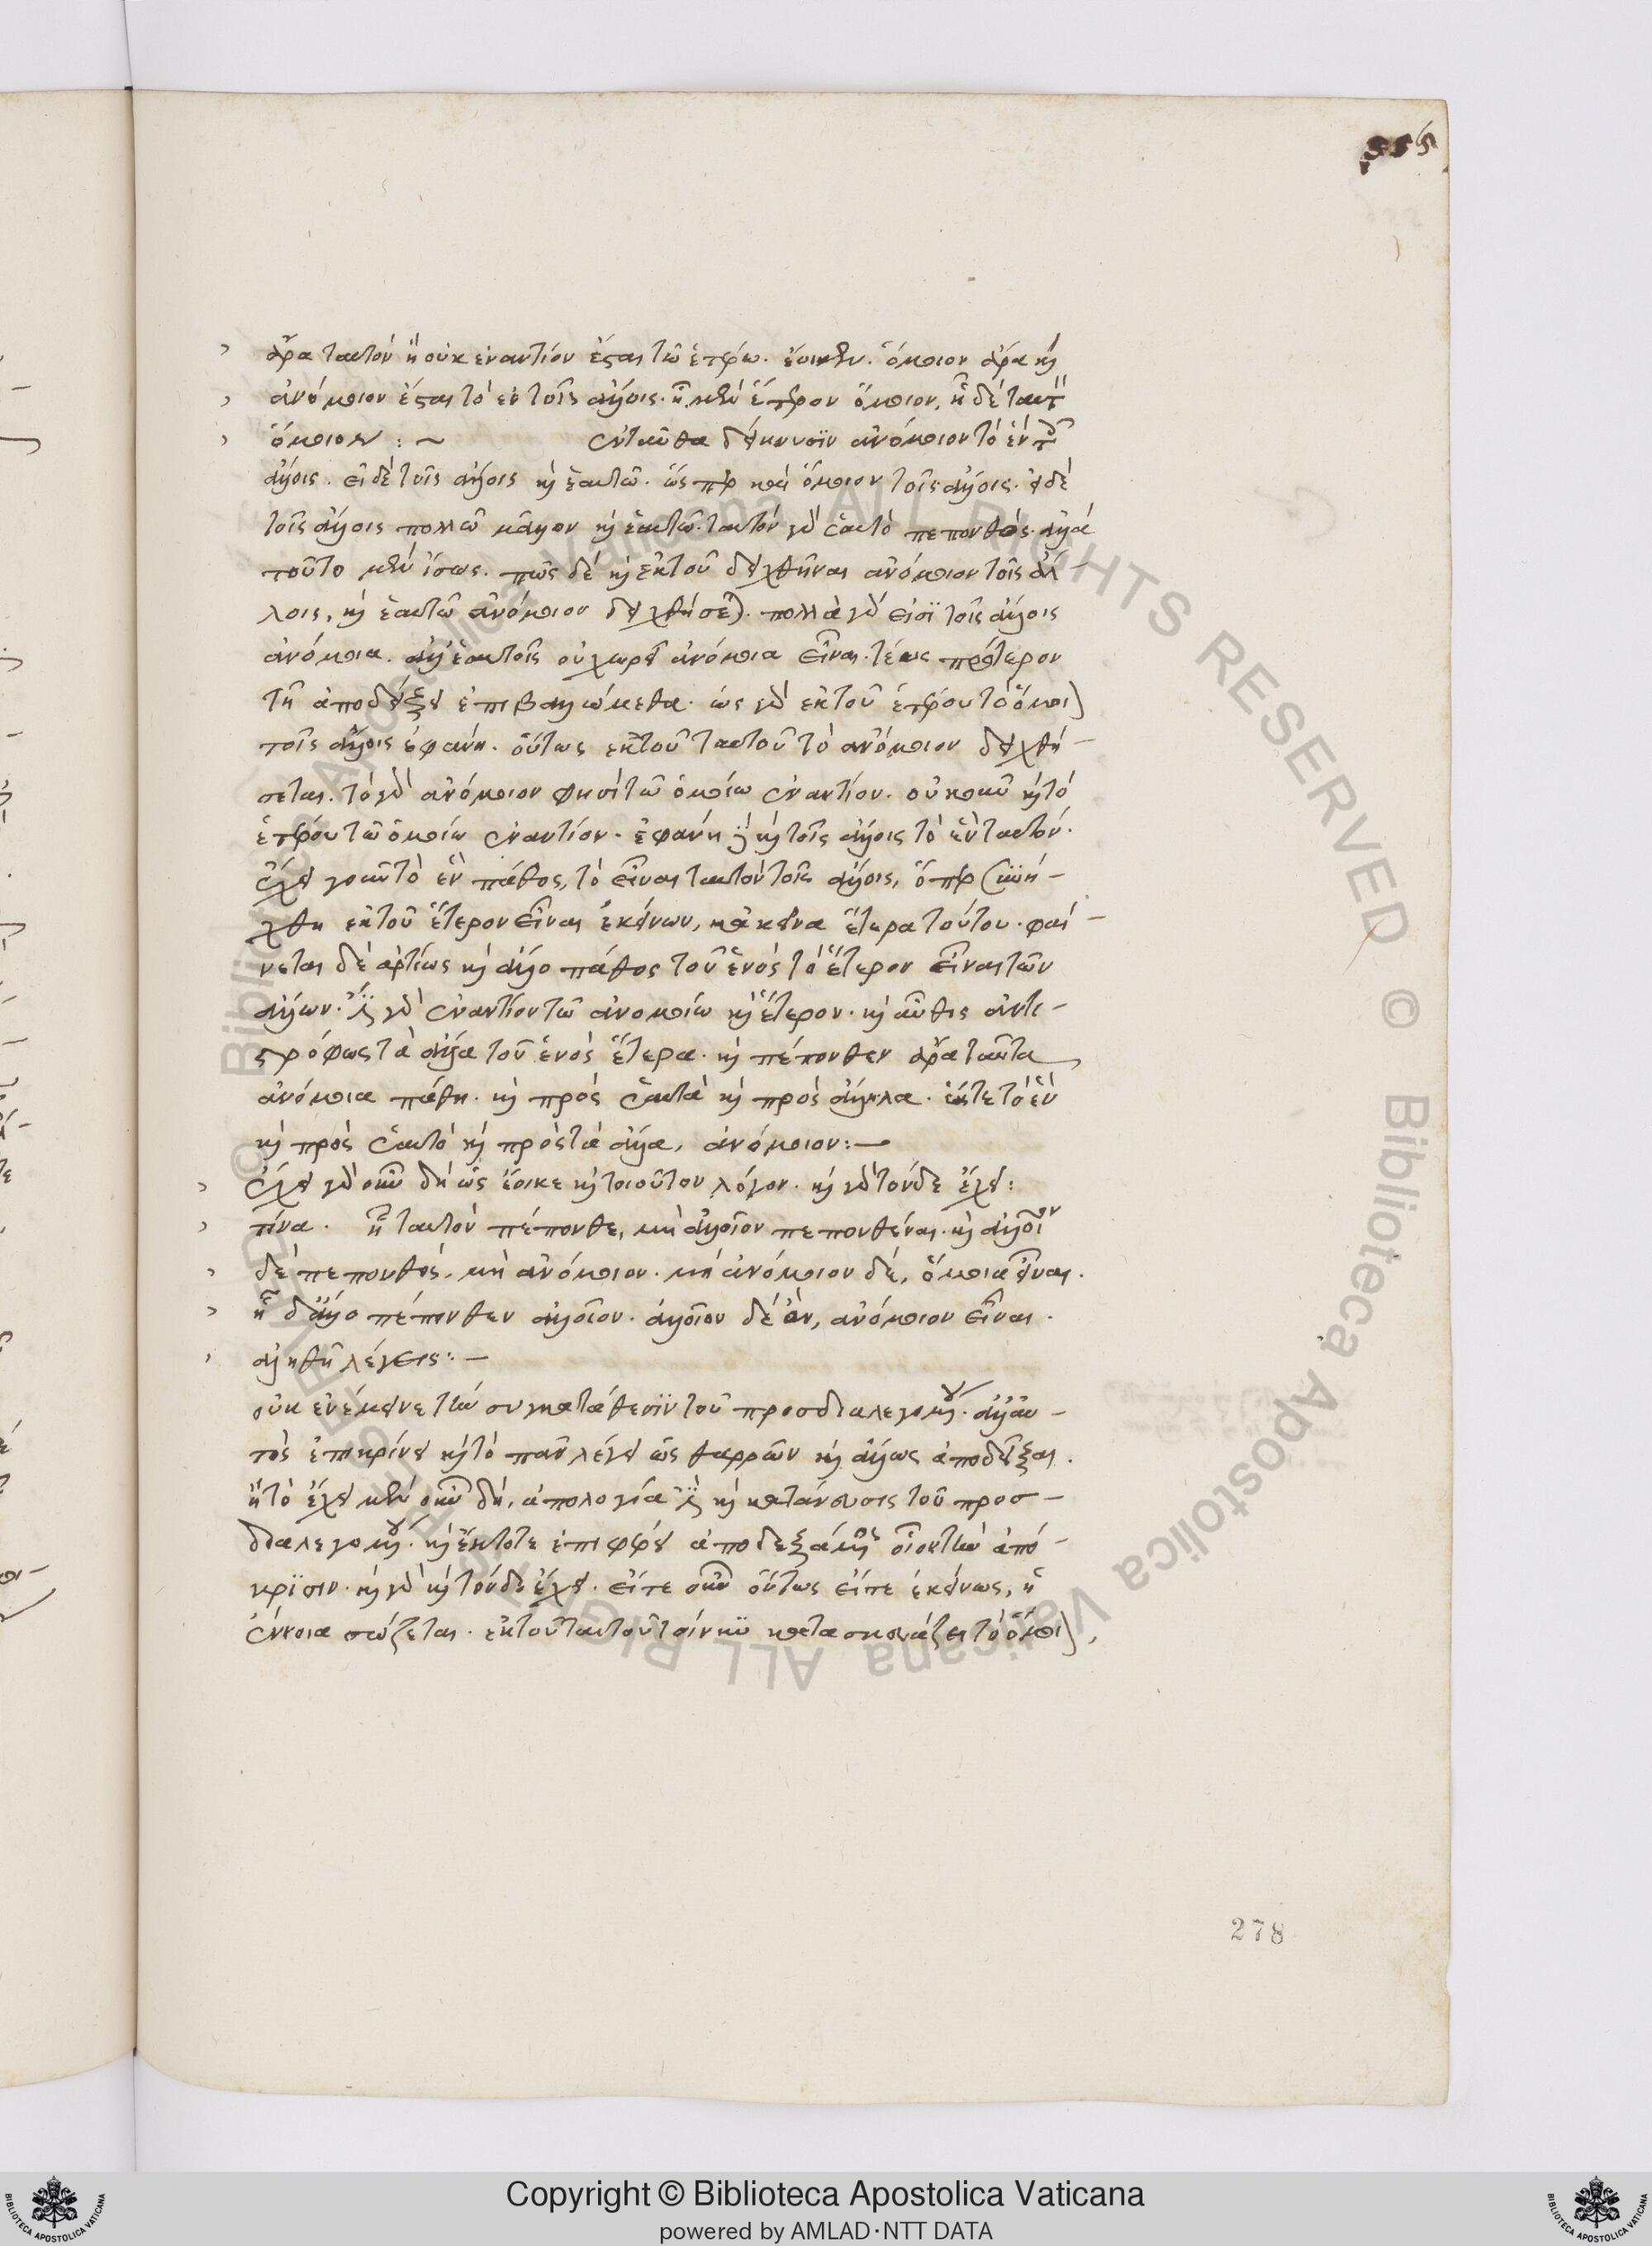 ἆρα ταυτὸν ἢ οὐκ ἐναντίον ἔσται τῶ ἑτέρω. ἔοικεν. ὅμοιον ἄρα καὶ
ἀνόμοιον ἔσται τὸ ἓν τοῖς ἄλλοις. ἧ μὲν ἕτερον ὅμοιον, ἧ δὲ ταυτὸν
ἀνόμοιον :~ ἐνταῦθα δείκνυσϊν ἀνόμοιον τὸ ἓν τοῖς
ἄλλοις. εἰ δὲ τοῖς ἄλλοις καὶ ἑαυτῶ. ὥς περ καὶ ὅμοιον τοῖς ἄλλοις. εἰ δὲ
τοῖς ἄλλοις πολλῶ μᾶλλον καὶ ἑαυτῶ. ταυτὸν γὰρ ἑαυτὸ πεπονθὸς. ἀλλὰ
τοῦτο μὲν ἴσως. πῶς δὲ καὶ ἐκ τοῦ δειχθῆναι ἀνόμοιον τοῖς ἄλ-
λοις, καὶ ἑαυτῶ ἀνόμοιον δειχθήσεται. πολλὰ γὰρ εἰσϊ τοῖς ἄλλοις
ἀνόμοια. ἀλλ' ἑαυτοῖς οὐ χωρεῖ ἀνόμοια εἶναι. τέως πρότερον
τῆ ἀποδείξει ἐπιβαλλώμεθα. ὡς γὰρ ἐκ τοῦ ἑτέρου τὸ ὅμοιον
τοῖς ἄλλοις ἐφάνη. οὕτως ἐκ τοῦ ταυτοῦ τὸ ἀνόμοιον δειχθή-
σεται. τὸ γὰρ ἀνόμοιον φησὶ τῶ ὁμοίω ἐναντίον. οὐκοῦν καὶ τὸ
ἑτέρου τῶ ὁμοίω ἐναντίον. ἐφάνη δὲ καὶ τοῖς ἄλλοις τὸ ἓν ταυτόν.
ἔχει γοῦν τὸ ἓν πάθος, τὸ εἶναι ταυτὸν τοῖς ἄλλοις, ὅπερ συνή-
χθη ἐκ τοῦ ἕτερον εἶναι ἐκείνων, κἀκεῖνα ἕτερα τούτου. φαί-
νεται δὲ ἀρτίως καὶ ἄλλο πάθος τοῦ ἑνὸς τὸ ἕτερον εἶναι τῶν
ἄλλων. ἔστι γὰρ ἐναντίον τῶ ἀνομοίω καὶ ἕτερον. καὶ αὖθις ἀντι-
στρόφως τὰ ἄλλα τοῦ ἑνὸς ἕτερα. καὶ πέπονθεν ἄρα ταῦτα
ἀνόμοια πάθη. καὶ πρὸς ἑαυτὰ καὶ πρὸς ἄλληλα. ἔστι τὸ ἓν
καὶ πρὸς ἑαυτὸ καὶ πρὸς τὰ ἄλλα, ἀνόμοιον:—
ἔχει γὰρ οὖν δὴ ὡς ἔοικε καὶ τοιοῦτον λόγον. καὶ γὰρ τόνδε ἔχει:
τίνα. ἧ ταυτὸν πέπονθε, μὴ ἀλλοῖον πεπονθέναι. μὴ ἀλλοῖον
δὲ πεπονθὸς, μὴ ἀνόμοιον. μὴ ἀνόμοιον δὲ, ὅμοιον εἶναι.
ἧ δ' ἄλλο πέπονθεν ἀλλοῖον. ἀλλοῖον δὲ ὂν, ἀνόμοιον εἶναι.
ἀληθῆ λέγεις:—
οὐκ ἐνέμεινε τὴν συγκατάθεσϊν τοῦ προσδιαλεγομένου. ἀλλ' αὐ-
τὸς ἐπικρίνει καὶ τὸ πᾶν λέγει ὡς θαρρῶν καὶ ἄλλως ἀποδεῖξαι.
ἢ τὸ ἔχει μὲν οὖν δὴ, ἀπολογία ἔστι καὶ κατάνευσις τοῦ προσ-
διαλεγομένου. καὶ ἔκτοτε ἐπιφέρει ἀποδεξάμενος οἷον τὴν ἀπό-
κρϊσιν. καὶ γὰρ καὶ τόνδε ἔχει. εἴτε οὖν οὕτως εἴτε ἐκείνως, ἡ
ἔννοια σώζεται. ἐκ τοῦ ταυτοῦ τοίνυν κατασκευάζει τὸ ὅμοιον,
278
Copyright © Biblioteca Apostolica Vaticana
powered by AMLAD·NTT DATA